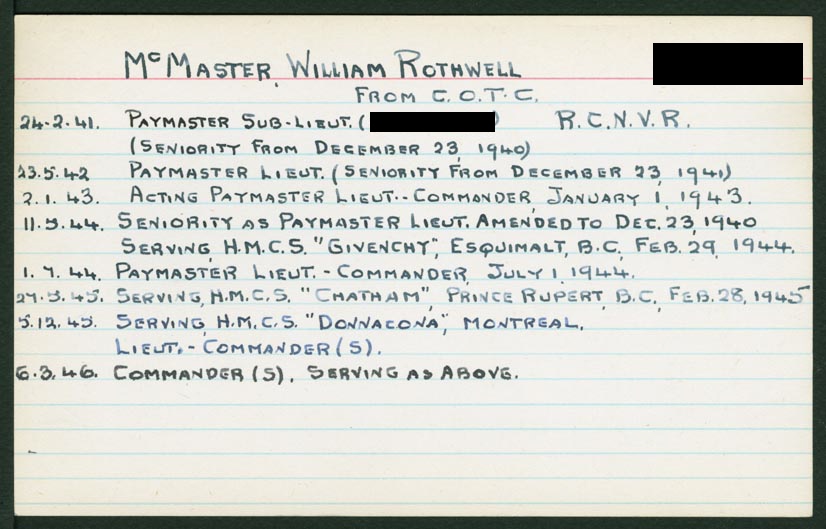 McMASTER, WILLIAM ROTHWELL
FROM C.O.T.C.
24-2-41. PAYMASTER SUB-LIEUT. ( ) R.C.N.V.R.
(SENIORITY FROM DECEMBER 23, 1940)
23.5.42 PAYMASTER LIEUT. (SENIORITY FROM DECEMBER 23, 1941)
2.1.43. ACTING PAYMASTER LIEUT.-COMMANDER, JANUARY 1, 1943.
11.5.44. SENIORITY AS PAYMASTER LIEUT. AMENDED TO DEC. 23, 1940
SERVING, H.M.C.S. "GIVENCHY", ESQUIMALT, B.C, FEB. 29, 1944.
1.7.44. PAYMASTER LIEUT.-COMMANDER, JULY 1, 1944.
SERVING, H.M.C.S. "CHATHAM", PRINCE RUPERT, B.C, FEB. 28, 1945
5.12.45. SERVING, H.M.C.S. "DONNACONA", MONTREAL.
LIEUT.-COMMANDER (S).
6.3.46. COMMANDER (S). SERVING AS ABOVE.